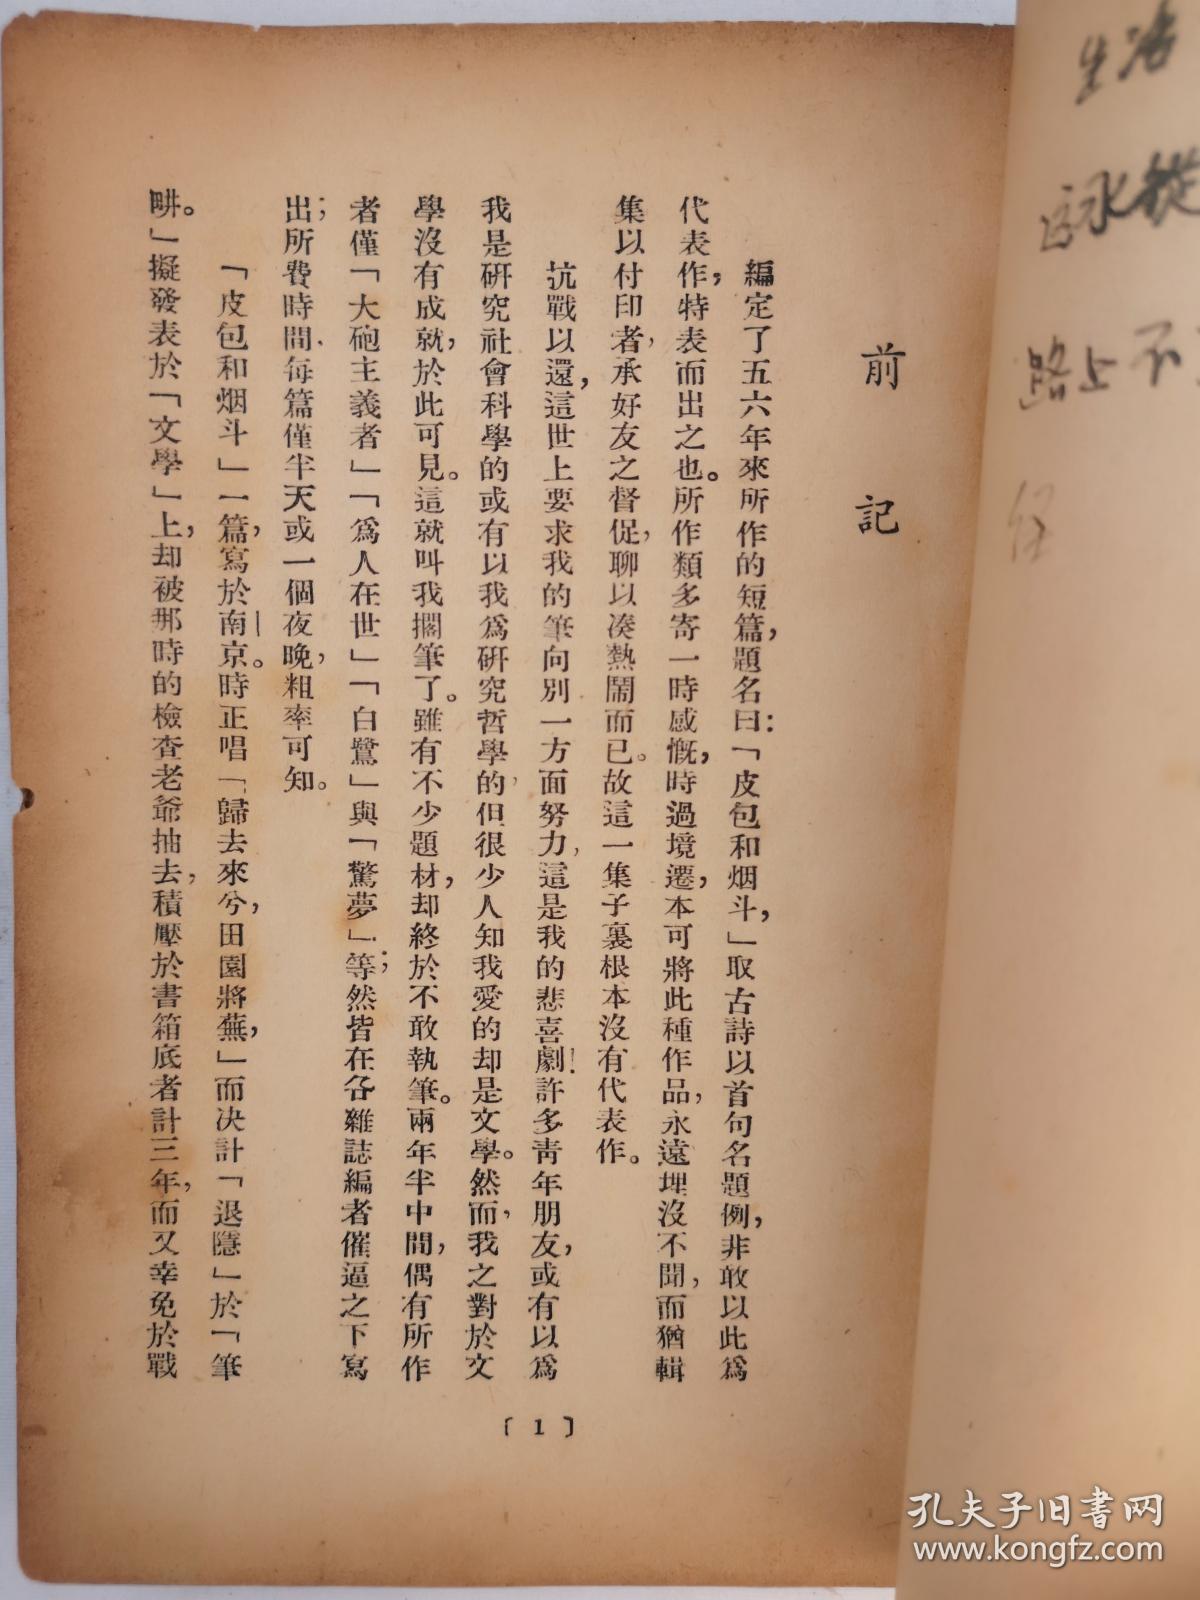 前記
編定了五六年來所作的短篇，題名曰：「皮包和烟斗，」取古詩以首句名題例，非敢以此爲
代表作，特表而出之也。所作類多寄一時感慨，時過境遷，本可將此種作品，永遠埋沒不聞，而猶輯
集以付印者，承好友之督促，聊以凑熱鬧而已。故這一集子裏根本沒有代表作。
抗戰以還，這世上要求我的筆向別一方面努力，這是我的悲喜劇！許多靑年朋友，或有以爲
我是研究社會科學的或有以我爲研究哲學的，但很少人知我愛的却是文學。然而，我之對於文
學沒有成就，於此可見。這就叫我擱筆了。雖有不少題材，却終於不敢執筆。兩年半中間，偶有所作
者僅「大砲主義者」「爲人在世」「白鷺」與「驚夢」等；然皆在各雜誌編者催逼之下寫
出；所費時間，每篇僅半天或一個夜晚，粗率可知。
「皮包和烟斗」一篇，寫於南京。時正唱「歸去來兮，田園將蕪，」而决計「退隱」於「筆
畊。」擬發表於「文學」上，却被那時的檢查老爺抽去，積壓於書箱底者計三年，而又幸免於戰
〔1〕
生活
永從
路上不
任
孔夫子旧书网
www.kongfz.com